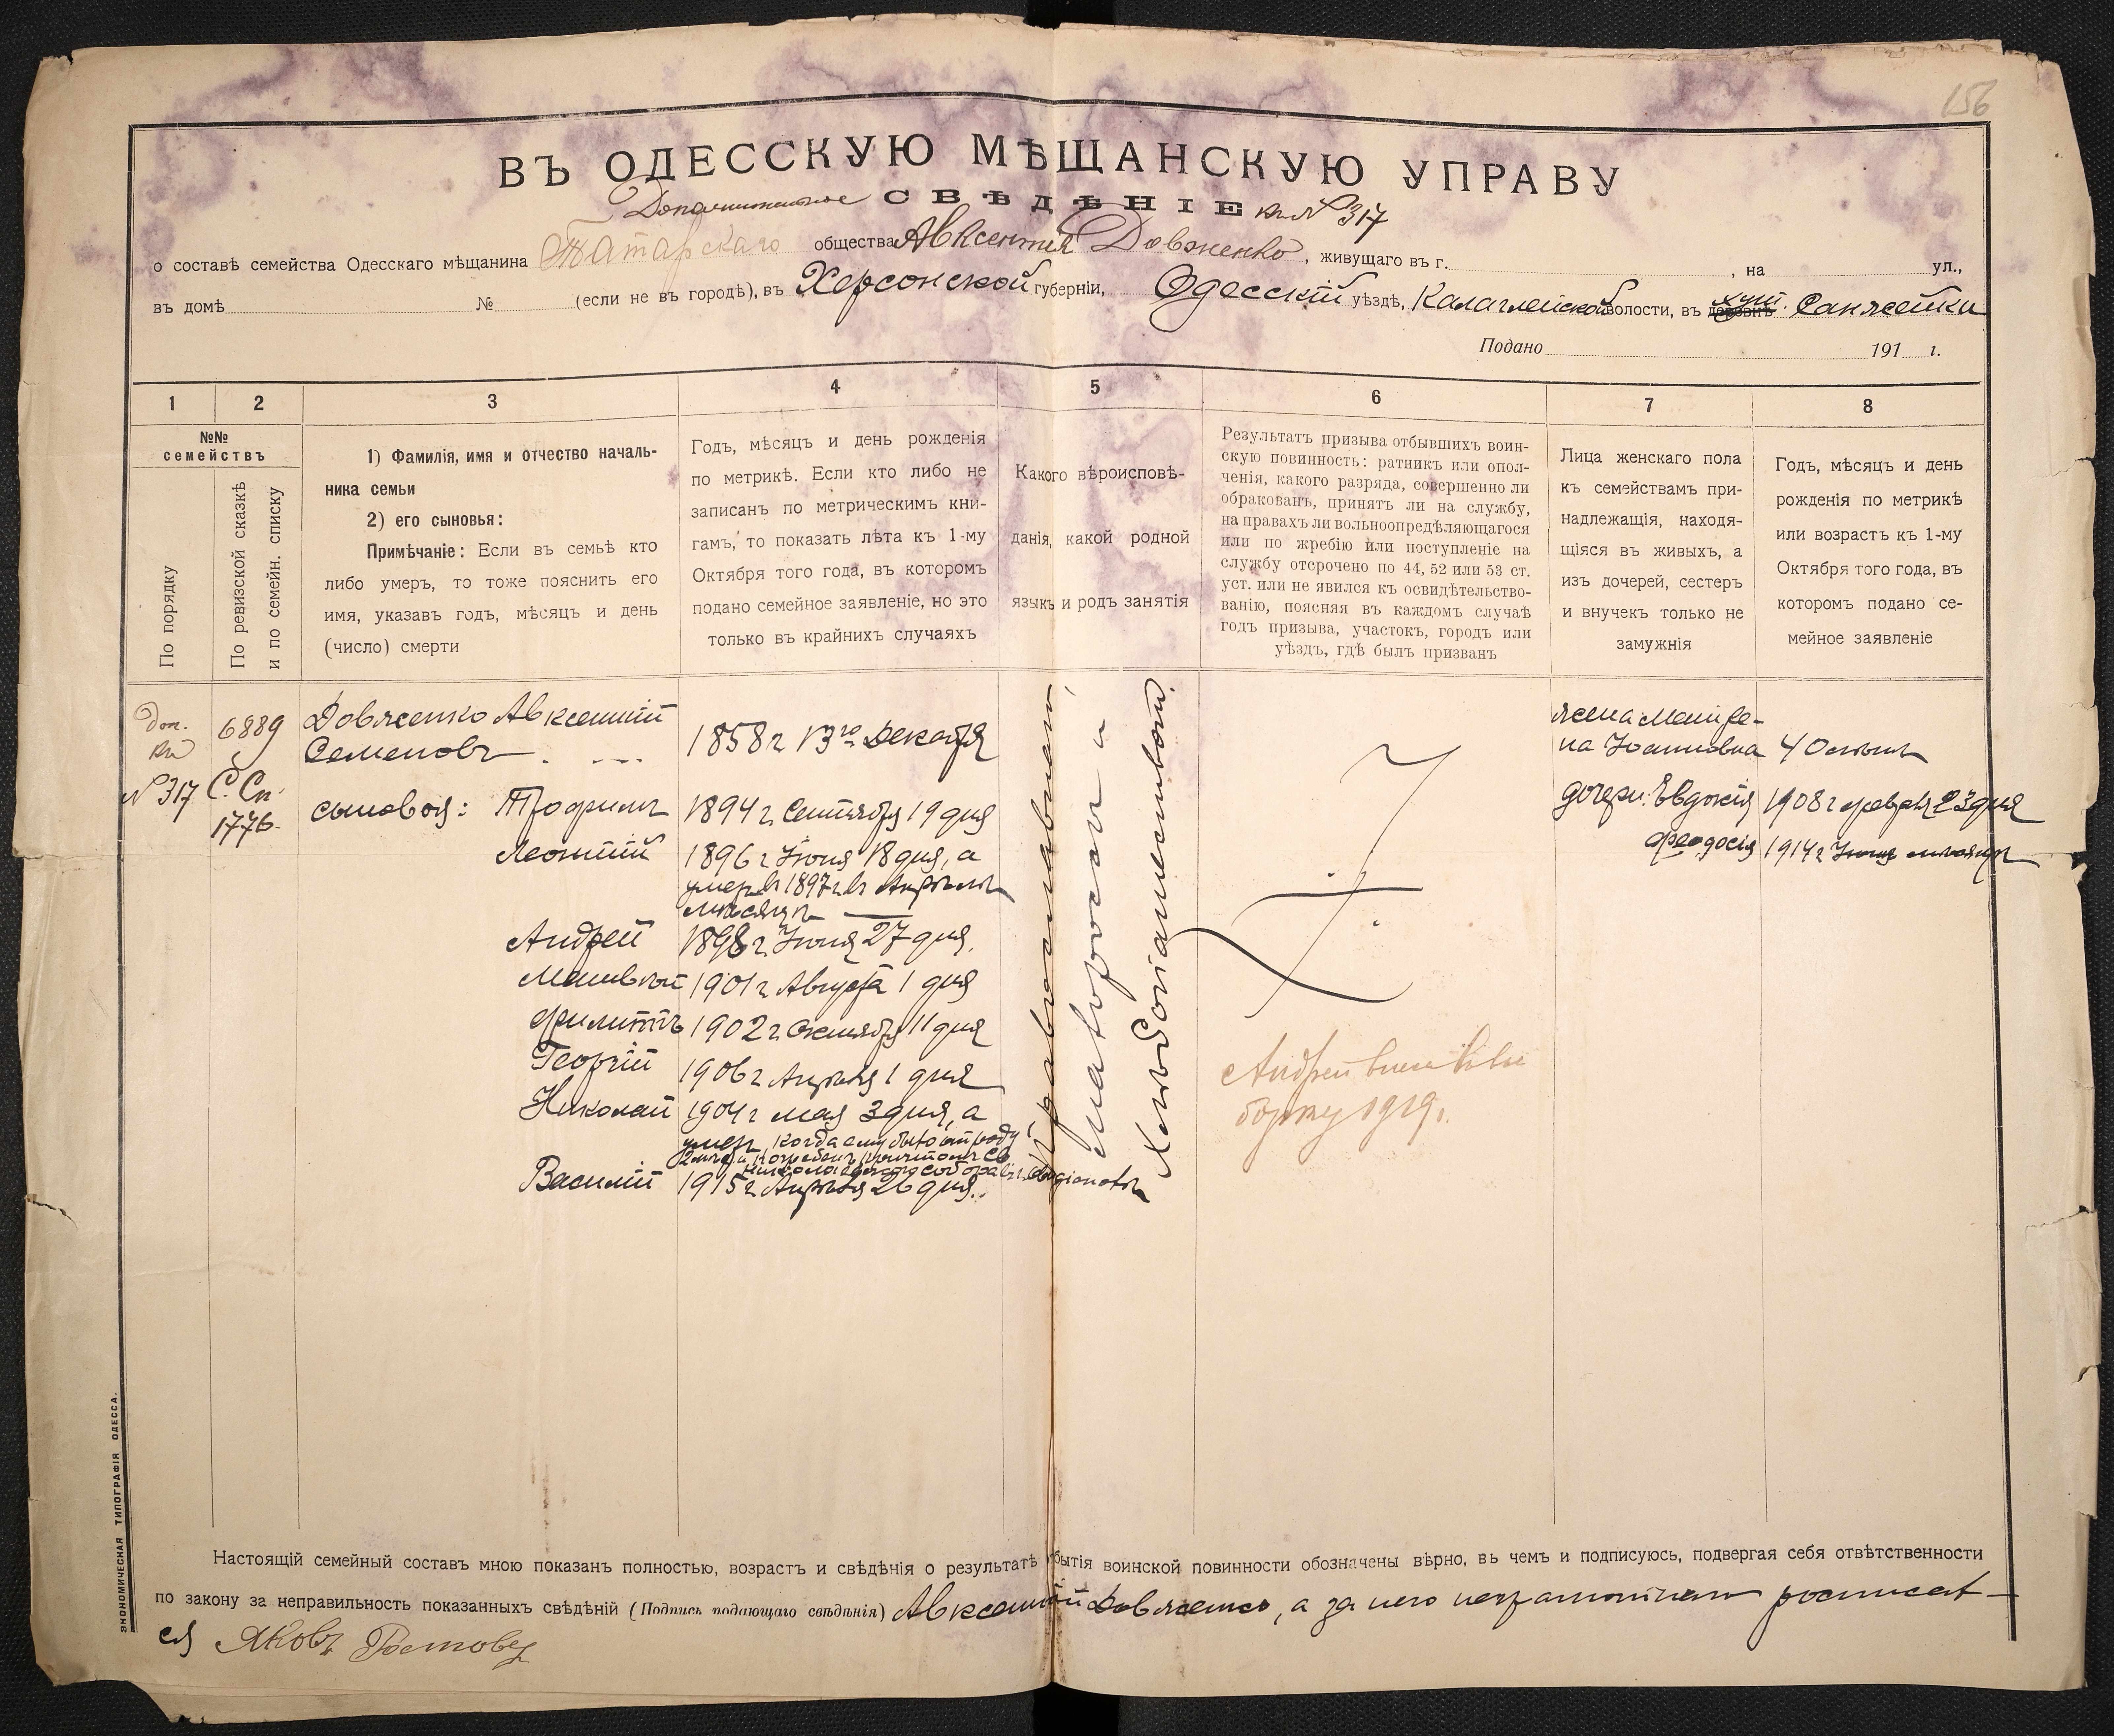 156
ВЪ ОДЕССКУЮ МѢЩАНСКУЮ УПРАВУ
Дополнительное СВѢДѢНІЕ къ № 317
о составѣ семейства Одесскаго мѣщанина Татарскаго общества Авксентія Довженко, живущаго въ г. , на ул.,
въ домѣ № (если не въ городѣ), въ Херсонской губерніи, Одесскій уѣздѣ, Калаглейской волости, въ деревнѣ хут. Санжейки
Подано 191 г.
1 2 3 4 5 6 7 8
№№ семействъ
По порядку
По ревизской сказкѣ
и по семейн. списку
1) Фамилія, имя и отчество началь-
ника семьи
2) его сыновья:
Примѣчаніе: Если въ семьѣ кто
либо умеръ, то тоже пояснить его
имя, указавъ годъ, мѣсяцъ и день
(число) смерти
Годъ, мѣсяцъ и день рожденія
по метрикѣ. Если кто либо не
записанъ по метрическимъ кни-
гамъ, то показать лѣта къ 1-му
Октября того года, въ которомъ
подано семейное заявленіе, но это
только въ крайнихъ случаяхъ
Какого вѣроисповѣ-
данія, какой родной
языкъ и родъ занятія
Результатъ призыва отбывшихъ воин-
скую повинность: ратникъ или опол-
ченія, какого разряда, совершенно ли
обракованъ, принятъ ли на службу,
на правахъ ли вольноопредѣляющагося
или по жребію или поступленіе на
службу отсрочено по 44, 52 или 53 ст.
уст. или не явился къ освидѣтельство-
ванію, поясняя въ каждомъ случаѣ
годъ призыва, участокъ, городъ или
уѣздъ, гдѣ былъ призванъ
Лица женскаго пола
къ семействамъ при-
надлежащія, находя-
щіяся въ живыхъ, а
изъ дочерей, сестеръ
и внучекъ только не
замужнія
Годъ, мѣсяцъ и день
рожденія по метрикѣ
или возрастъ къ 1-му
Октября того года, въ
которомъ подано се-
мейное заявленіе
доп. къ № 317
6889
С. Сп. 1776.
Довженко Авксентій
Семеновъ
1858 г 13го Декабря
сыновья: Трофимъ 1894 г. Сентября 19 дня
Леонтій 1896 г Іюня 18 дня, а
умеръ въ 1897 г. въ Апрѣлѣ
мѣсяцѣ
Андрей 1898 г. Іюня 27 дня.
Матвѣй 1901 г Августа 1 дня
Филиппъ 1902 г. Октября 11 дня
Георгій 1906 г Апрѣля 1 дня
Николай 1904 г мая 3 дня, а
умеръ, когда ему было отъ роду
2 погребенъ причтомъ Св
Николаевскаго собора въ г. Овидіополѣ
Василій 1915 г. Апрѣля 26 дня.
Православный,
малороссъ и
Хлѣбопашествомъ.
Андрей внесенъ въ
1919.
жена Матре-
на Іоанновна 40 лѣтъ
дочери: Евдокія 1908 г февраля 23 дня
Феодосія 1914 г Іюня мѣсяца
ЭКОНОМИЧЕСКАЯ ТИПОГРАФІЯ ОДЕССА.
Настоящій семейный составъ мною показанъ полностью, возрастъ и свѣдѣнія о результатѣ отбытія воинской повинности обозначены вѣрно, въ чемъ и подписуюсь, подвергая себя отвѣтственности
по закону за неправильность показанныхъ свѣдѣній (Подпись подающаго свѣдѣнія) Авксентій Довженко, а за него неграмотнаго росписал-
ся Яковъ Ростовец